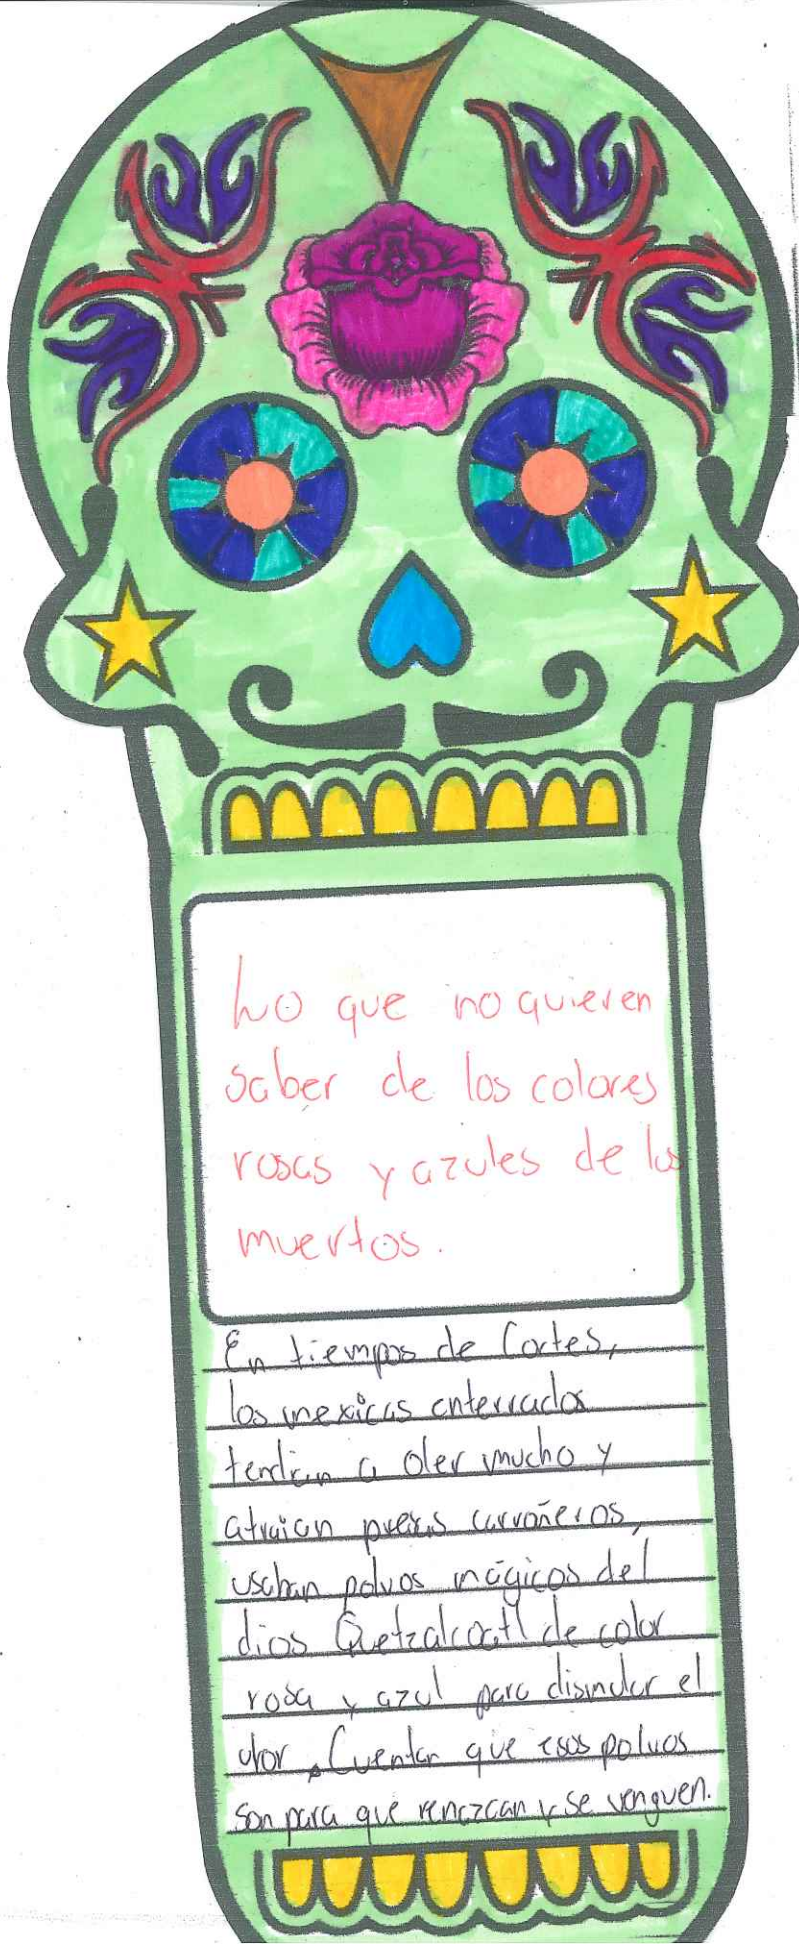 Lo que no quieren
saber de los colores
rosas y azules de los
muertos.
En tiempos de Cortes,
los mexicas enterrados
tendian a oler mucho y
atraian presas carroñeros,
usaban polvos mágicos del
dios Quetzalcoatl de color
rosa y azul para disimular el
olor. Cuentan que esos polvos
son para que renazcan y se venguen.